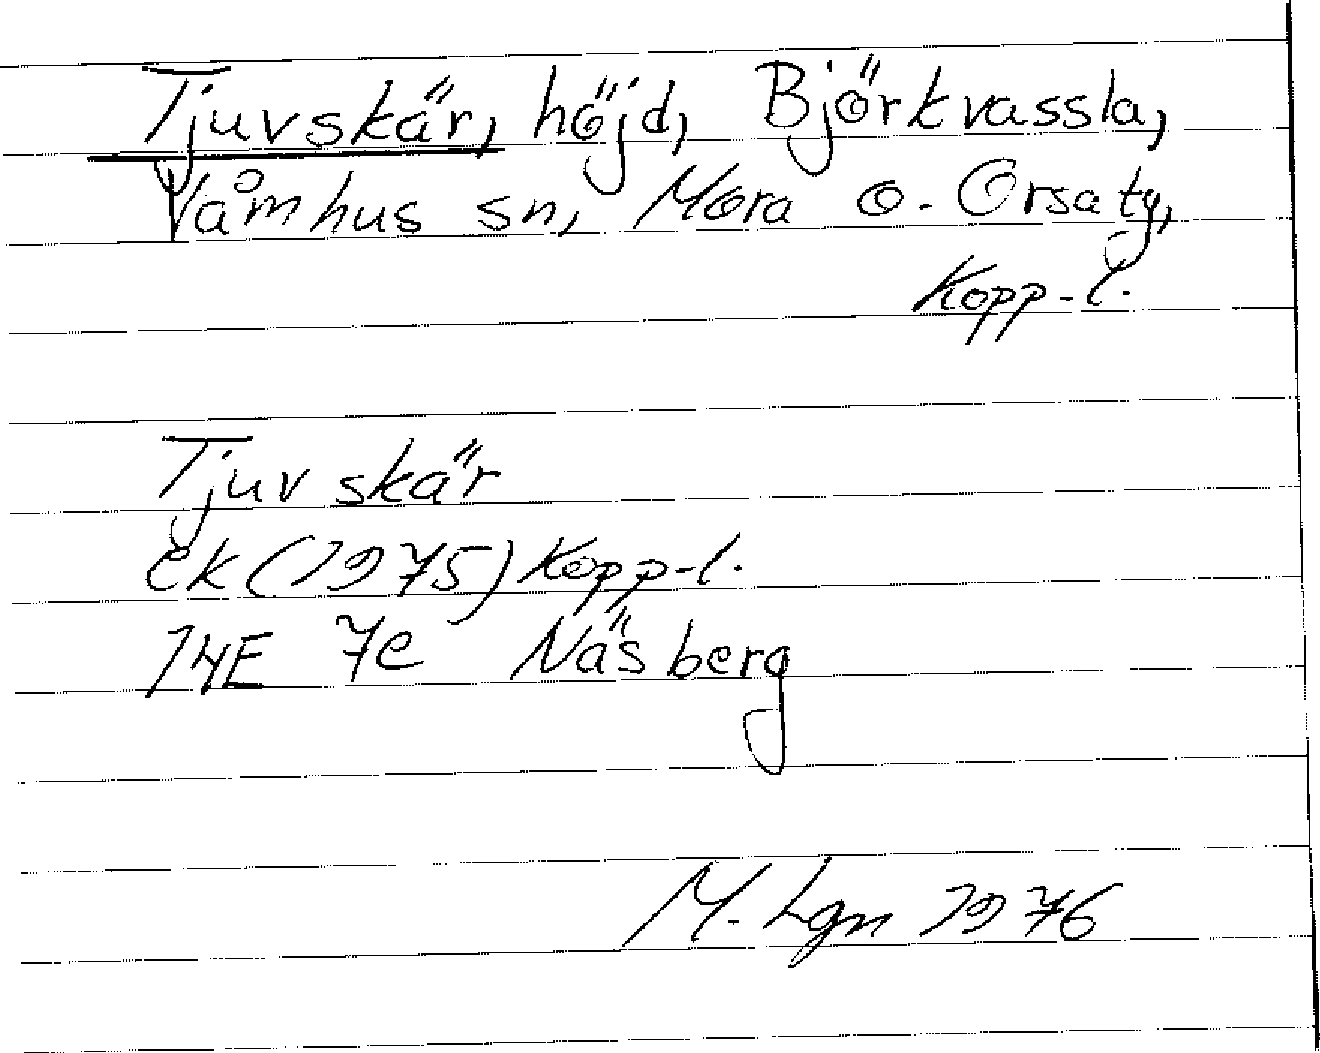 Tjuvskär, höjd, Björkvassla,
Våmhus sn, Mora o. Orsa tg,
Kopp-l.
Tjuvskär
Ek (1975) Kopp-l.
14E 7e Näsberg
M. Lgn 1976